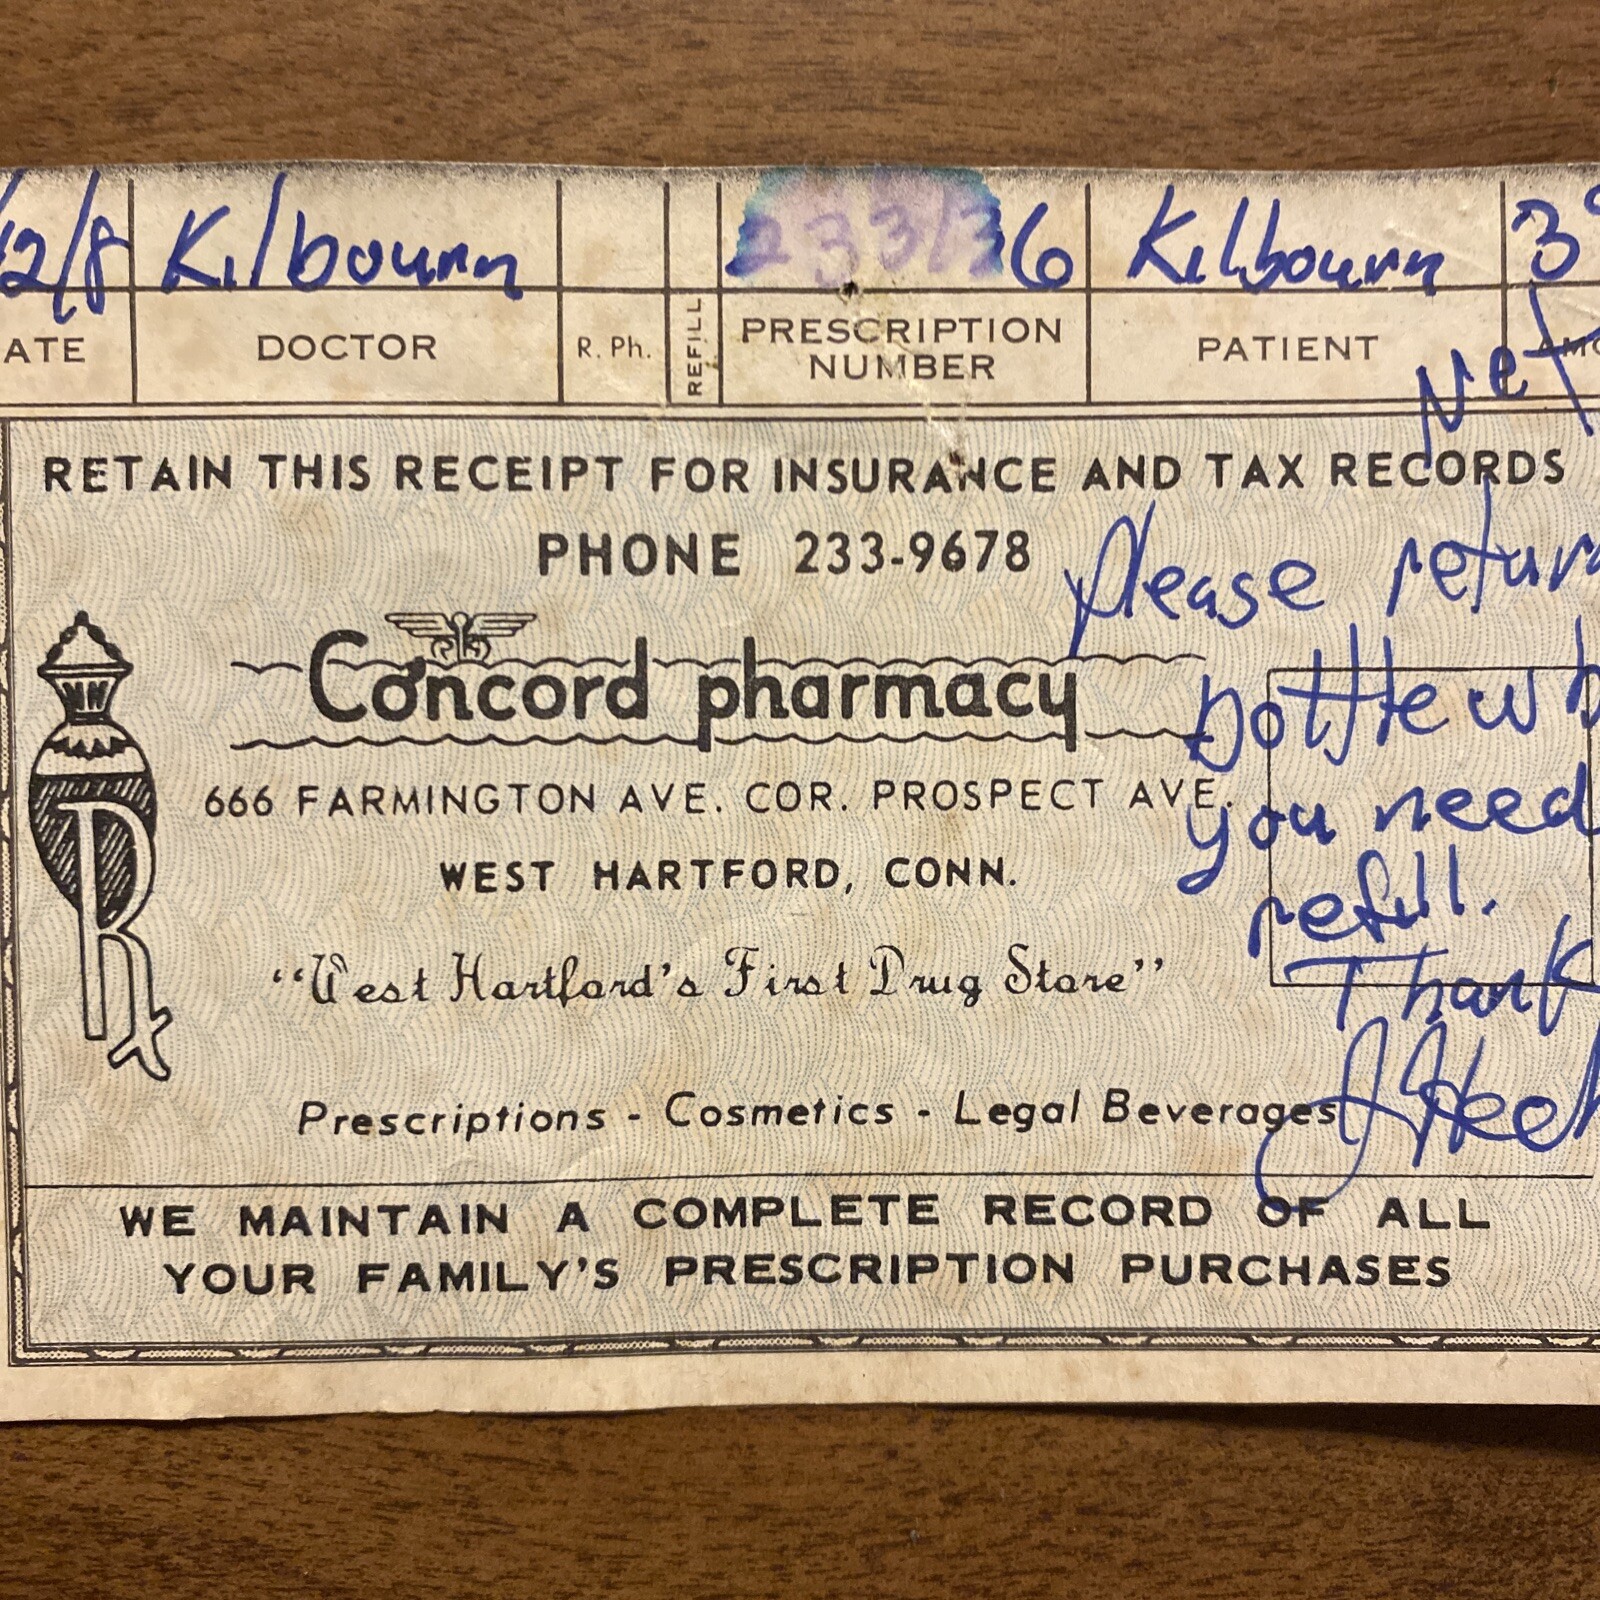 12/8 Kilbourn 6 Kilbourn 3
ATE DOCTOR R. Ph. REFILL PRESCRIPTION NUMBER PATIENT
Net
RETAIN THIS RECEIPT FOR INSURANCE AND TAX RECORDS
PHONE 233-9678
Please return
Concord pharmacy
bottle wh
666 FARMINGTON AVE. COR. PROSPECT AVE.
you need
WEST HARTFORD, CONN.
refill.
"West Hartford's First Drug Store"
Thank
Rx
Prescriptions - Cosmetics - Legal Beverages
WE MAINTAIN A COMPLETE RECORD OF ALL
YOUR FAMILY'S PRESCRIPTION PURCHASES